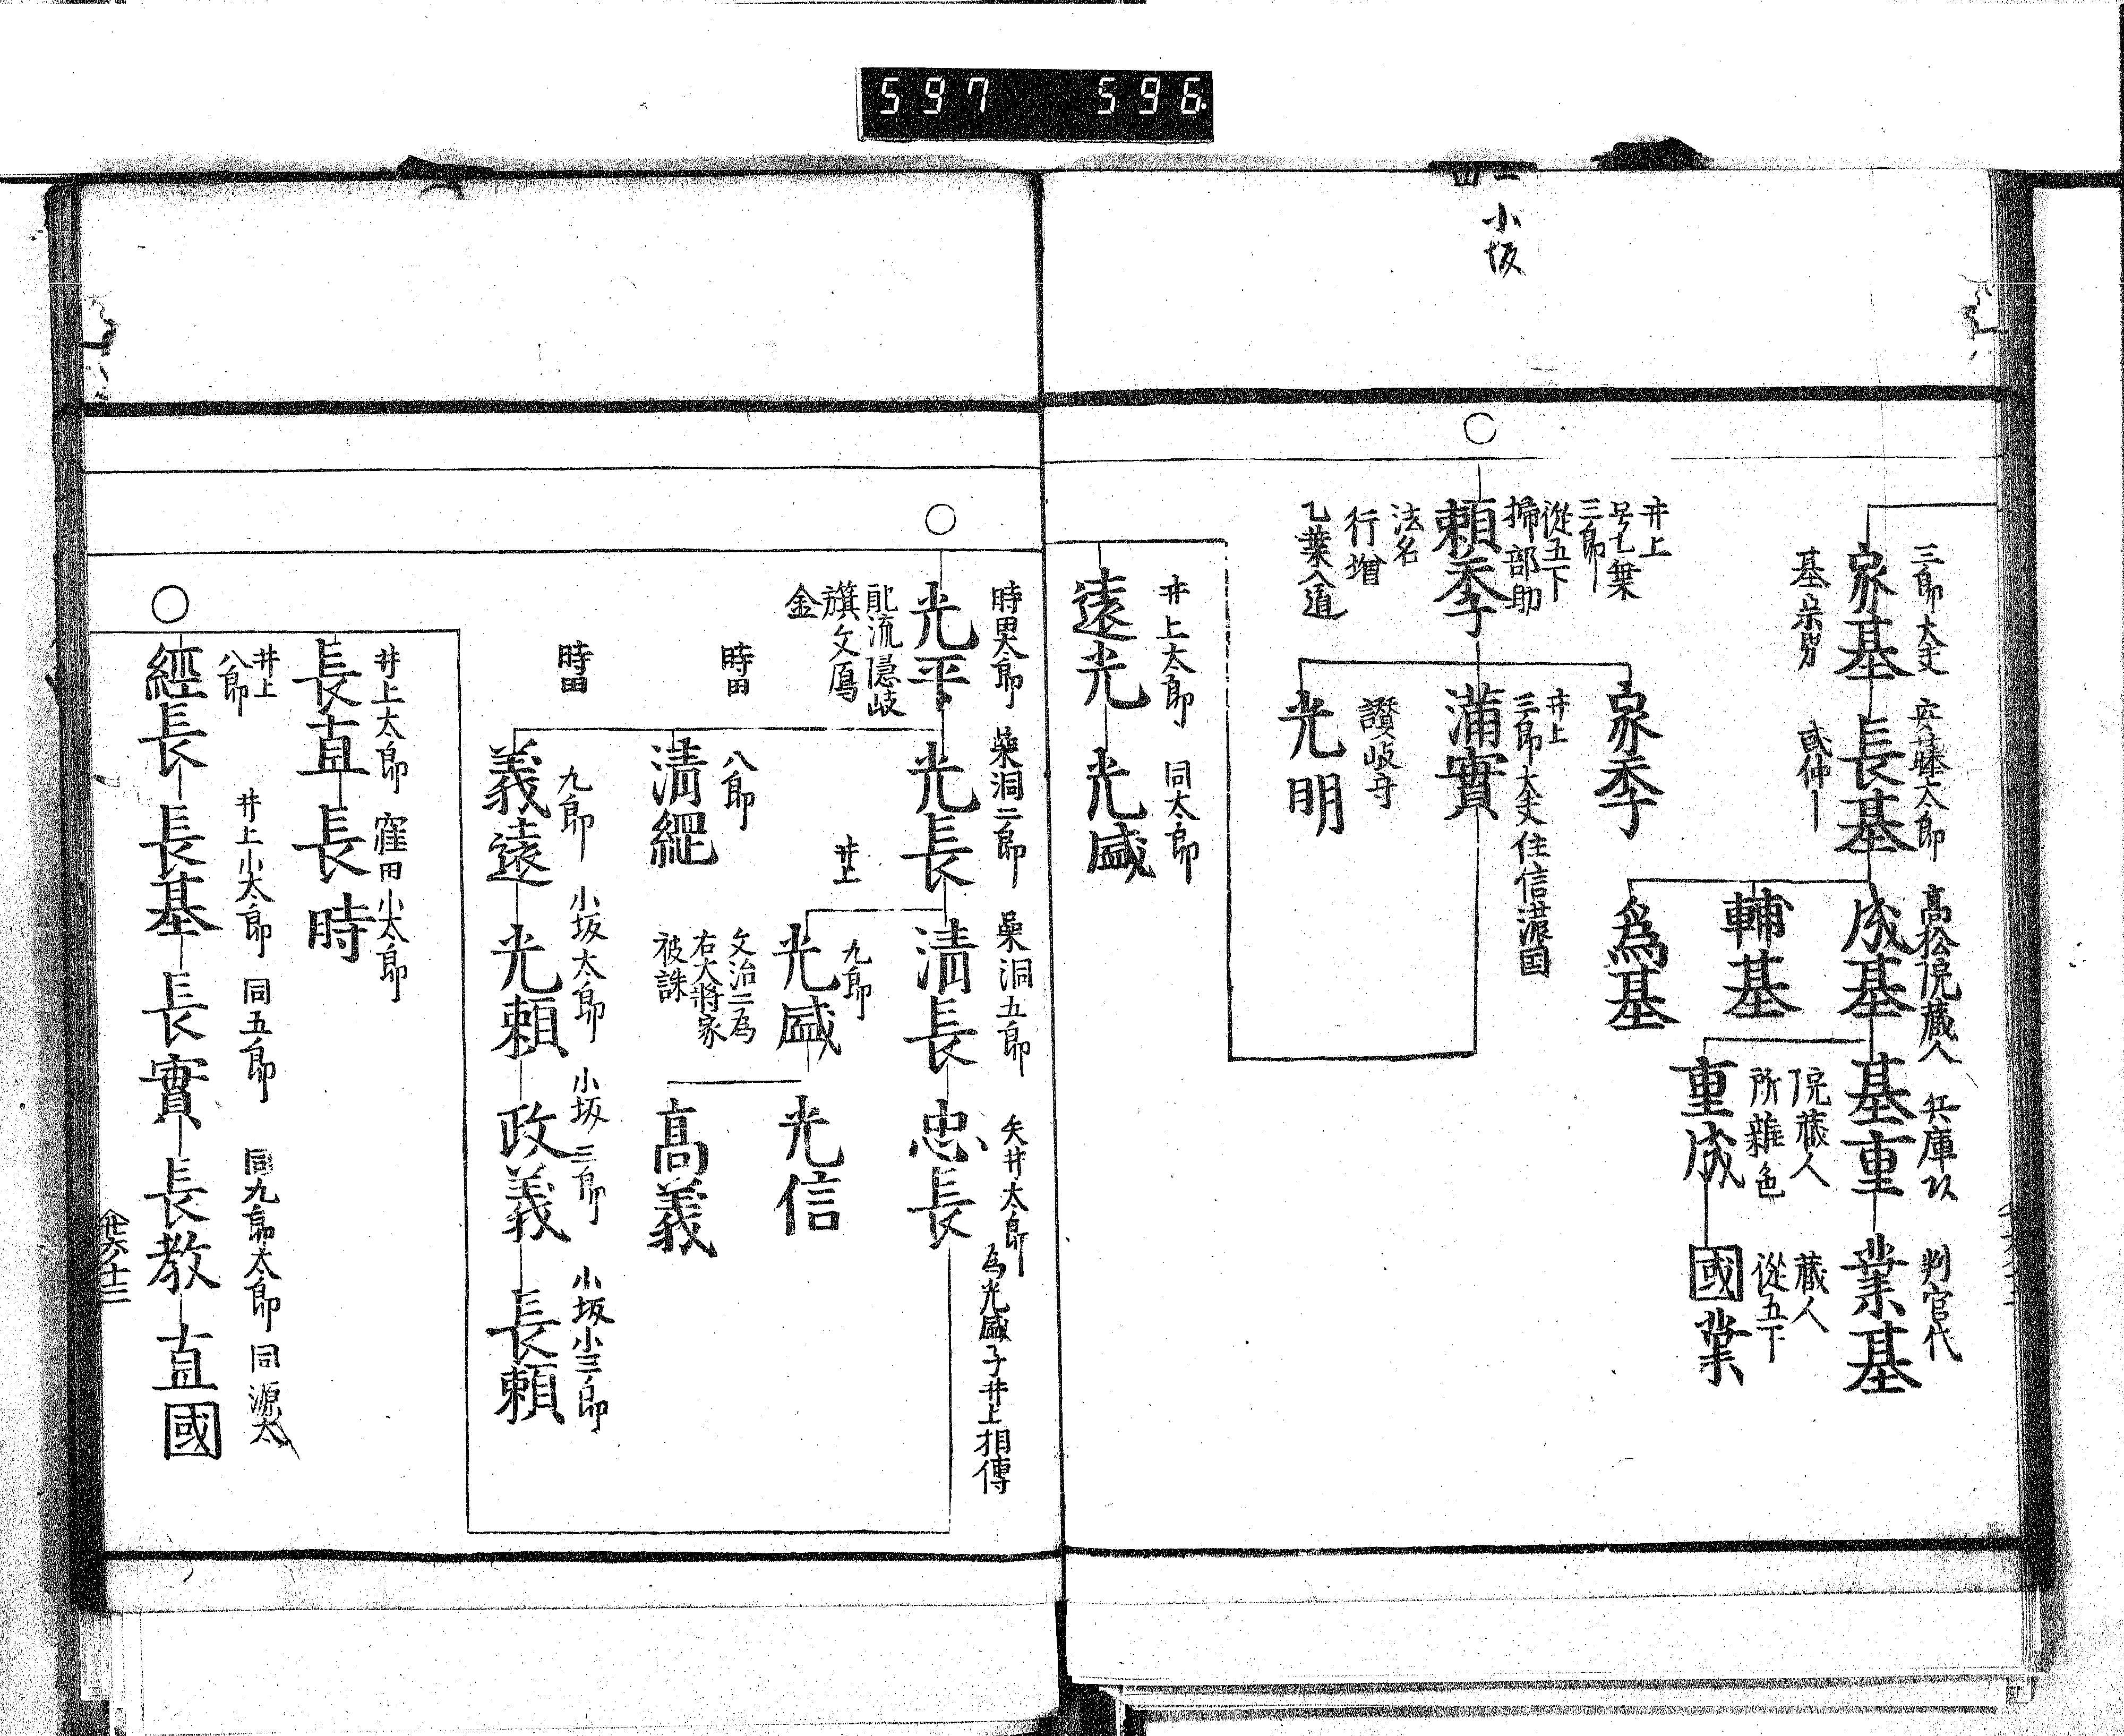 597 596
小坂
三郎大夫
家基
基宗男
安藤太郎
長基
高松院蔵人
成基
兵庫以
基重
判官代
業基
輔基
為基
院蔵人
所雜色
重成
蔵人
從五下
國業
井上
号乙葉
三郎
從五下
掃部助
頼季
法名
行増
乙葉入道
家季
井上
三郎大夫住信濃国
満實
讃岐守
光明
井上太郎
遠光
同太郎
光盛
時田太郎
光平
配流隠岐
旗文鳫
金
桑洞二郎
光長
桑洞五郎
清長
矢井太郎
為光盛子井上相傳
忠長
井上
九郎
光盛
文治二為
右大將家
被誅
光信
高義
時田
八郎
清經
時田
九郎
義遠
小坂太郎
光頼
小坂三郎
政義
小坂小三郎
長頼
井上太郎
長直
窪田小太郎
長時
井上
八郎
經長
井上小太郎
長基
同五郎
長實
同九郎太郎
長教
同源太
直國